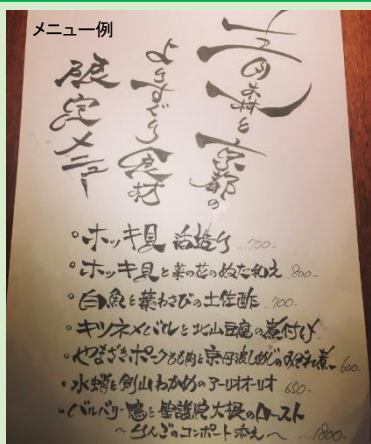 メニュー例
森と京都の
よりすぐり食材
限定メニュー
・ホッキ貝 活造り …700-
・ホッキ貝と菜の花のぬた和え …800-
・白魚と葉わさびの土佐酢 …700-
・キツネメバルと北山豆腐の煮付け
・やまざきポークもも肉と京丹波しめじのみぞれ煮…600-
・水蛸とわかめのアーリオオーリオ 650-
・バルバリー鴨と聖護院大根のロースト
～りんごのコンポート添え～ …1800-